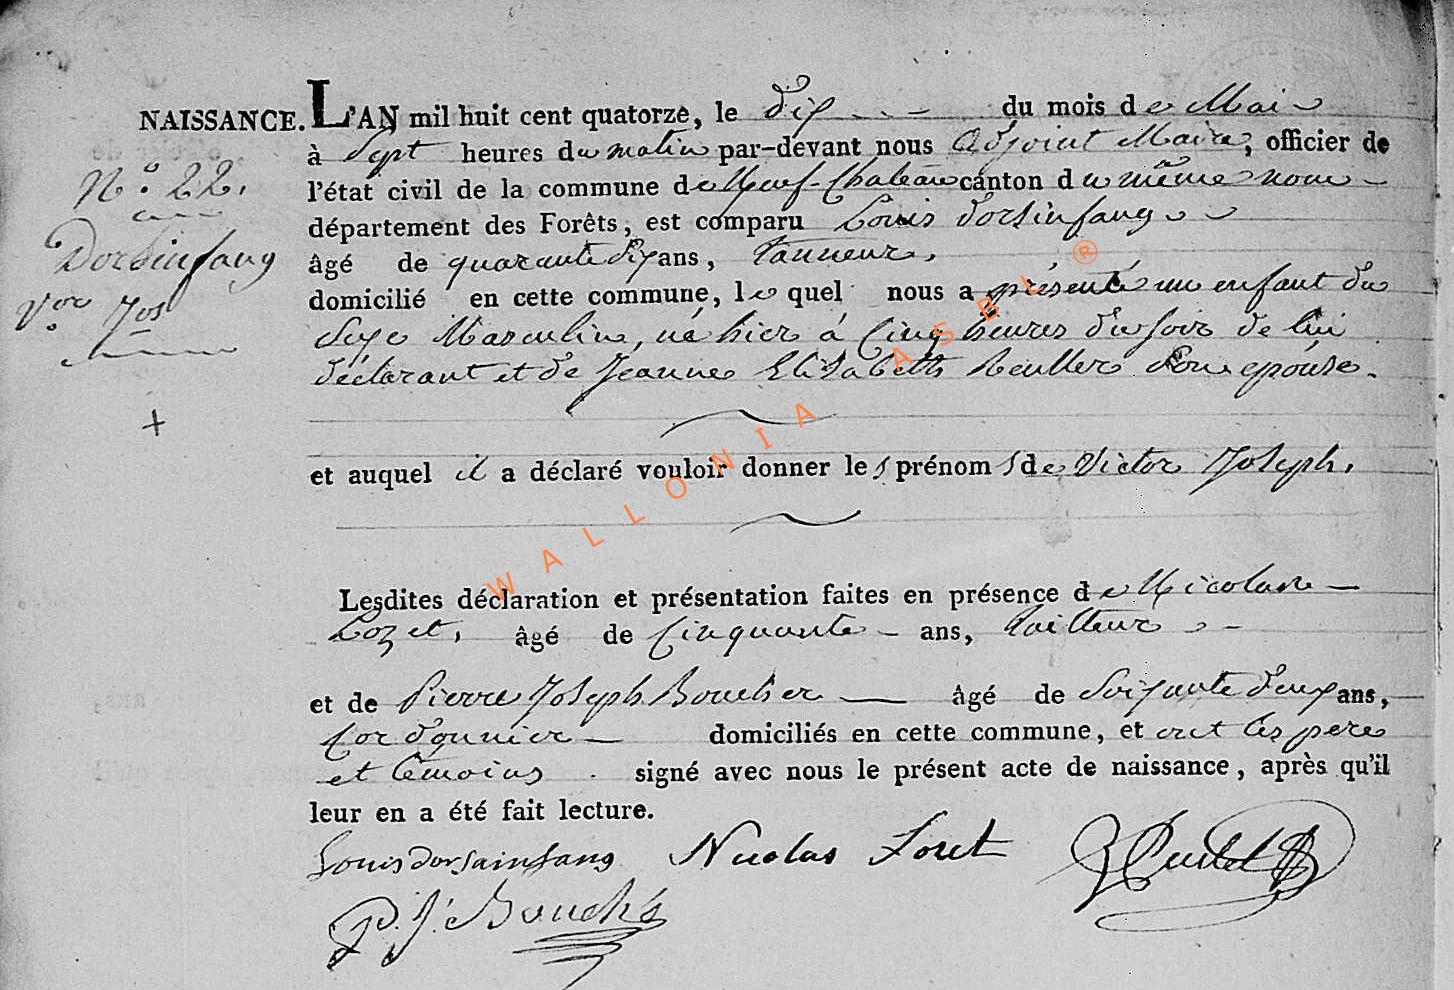 NAISSANCE. L'AN mil huit cent quatorze, le dix du mois de Mai
à Sept heures du matin par-devant nous Adjoint Maire, officier de
N.° 22.
l'état civil de la commune de Neuf-Chateau canton du même nom
département des Forêts, est comparu Louis Dorsinfang
Dorsinfang
âgé de quarante dix ans, tanneur,
V.or Jos
domicilié en cette commune, le quel nous a présenté un enfant du
Sexe Masculin, né hier à Cinq heures du soir de lui
déclarant et de Jeanne Elisabeth Reuller son epouse.
et auquel il a déclaré vouloir donner les prénoms de Victor Joseph.
Lesdites déclaration et présentation faites en présence de Nicolas
Lozet, âgé de Cinquante ans, tailleur
et de Pierre Joseph Bouchez âgé de Soixante deux ans,
Cordonnier domiciliés en cette commune, et ont les pere
et témoins signé avec nous le présent acte de naissance, après qu'il
leur en a été fait lecture.
Louis dorsainfang Nicolas Loret
P. J. Bouché
WALLONIA ASBL ®